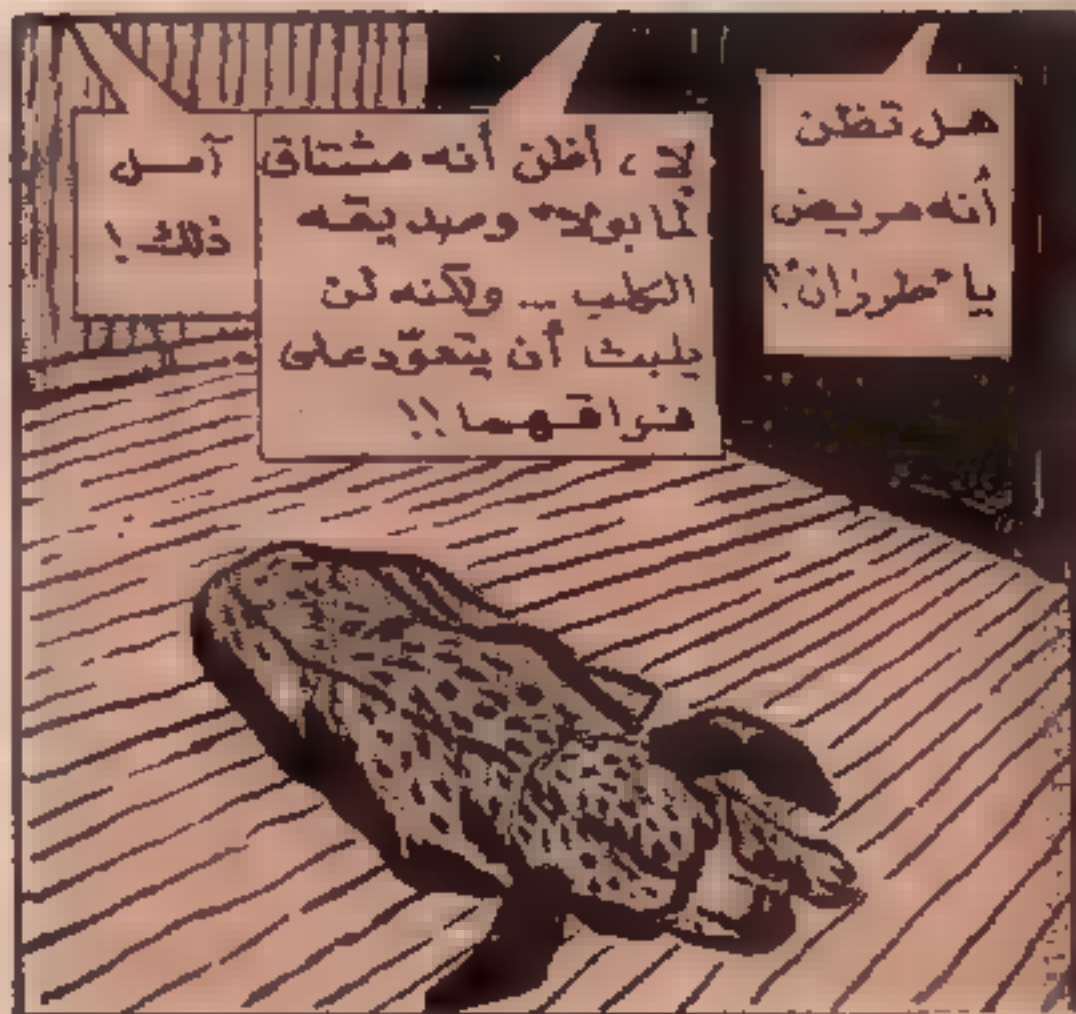 هل تظن
أنه مريض
يا "طرزان"؟
لا ، أظن أنه مشتاق
لـ"مابولا" وصديقه
الكلب ... ولكنه لن
يلبث أن يتعوّد على
فراقهما !!
آمل
ذلك !